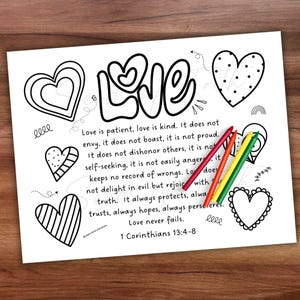 Love
Love is patient, love is kind. It does not
envy, it does not boast, it is not proud.
It does not dishonor others, it is not
self-seeking, it is not easily angered, it
keeps no record of wrongs. Love
not delight in evil but rejoices with
truth. it always protects, always
trusts, always hopes, always perseveres.
Love never fails.
1 Corinthians 13:4-8